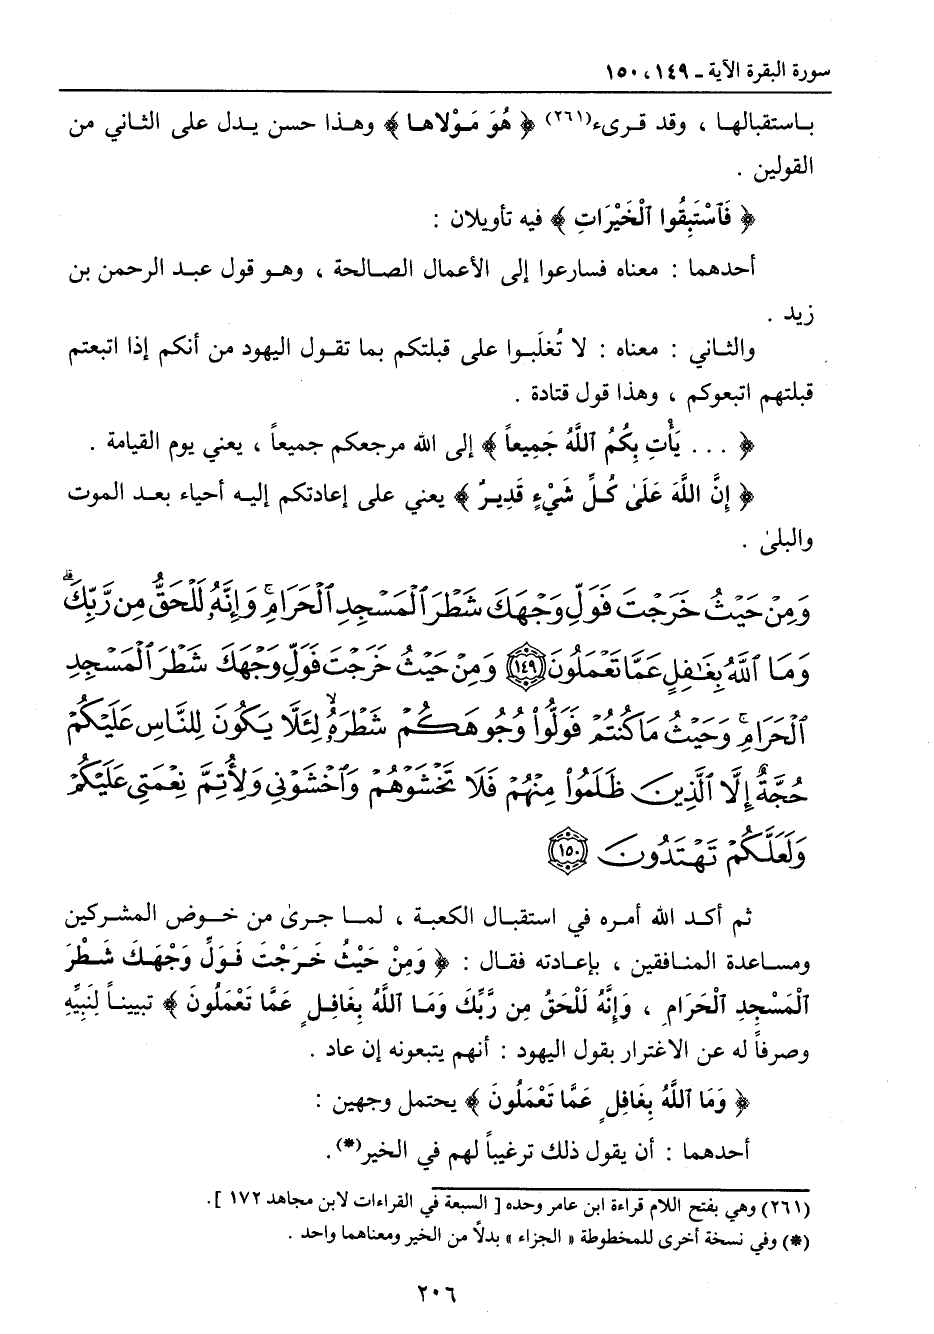 سورة البقرة الآية ـ ١٤٩، ١٥٠
باستقبالها ، وقد قرىء(٢٦١) ﴿ هُوَ مَوْلاها ﴾ وهذا حسن يدل على الثاني من
القولين .
﴿ فَٱسْتَبِقُوا ٱلْخَيْرَاتِ ﴾ فيه تأويلان :
أحدهما : معناه فسارعوا إلى الأعمال الصالحة ، وهو قول عبد الرحمن بن
زيد .
والثاني : معناه : لا تُغلَبوا على قبلتكم بما تقول اليهود من أنكم إذا اتبعتم
قبلتهم اتبعوكم ، وهذا قول قتادة .
﴿ ... يَأْتِ بِكُمُ ٱللَّهُ جَمِيعاً ﴾ إلى الله مرجعكم جميعاً ، يعني يوم القيامة .
﴿ إِنَّ اللَّهَ عَلَىٰ كُلِّ شَيْءٍ قَدِيرٌ ﴾ يعني على إعادتكم إليه أحياء بعد الموت
والبلىٰ .
وَمِنْ حَيْثُ خَرَجْتَ فَوَلِّ وَجْهَكَ شَطْرَ ٱلْمَسْجِدِ ٱلْحَرَامِ ۖ وَإِنَّهُۥ لَلْحَقُّ مِن رَّبِّكَ ۗ
وَمَا ٱللَّهُ بِغَٰفِلٍ عَمَّا تَعْمَلُونَ ١٤٩ وَمِنْ حَيْثُ خَرَجْتَ فَوَلِّ وَجْهَكَ شَطْرَ ٱلْمَسْجِدِ
ٱلْحَرَامِ ۚ وَحَيْثُ مَا كُنتُمْ فَوَلُّوا۟ وُجُوهَكُمْ شَطْرَهُۥ لِئَلَّا يَكُونَ لِلنَّاسِ عَلَيْكُمْ
حُجَّةٌ إِلَّا ٱلَّذِينَ ظَلَمُوا۟ مِنْهُمْ فَلَا تَخْشَوْهُمْ وَٱخْشَوْنِى وَلِأُتِمَّ نِعْمَتِى عَلَيْكُمْ
وَلَعَلَّكُمْ تَهْتَدُونَ ١٥٠
ثم أكد الله أمره في استقبال الكعبة ، لما جرىٰ من خوض المشركين
ومساعدة المنافقين ، بإعادته فقال : ﴿ وَمِنْ حَيْثُ خَرَجْتَ فَوَلِّ وَجْهَكَ شَطْرَ
ٱلْمَسْجِدِ ٱلْحَرَامِ ، وَإِنَّهُ لَلْحَقُ مِن رَّبِّكَ وَمَا ٱللَّهُ بِغَافِلٍ عَمَّا تَعْمَلُونَ ﴾ تبييناً لِنَبِيِّهِ
وصرفاً له عن الاغترار بقول اليهود : أنهم يتبعونه إن عاد .
﴿ وَمَا ٱللَّهُ بِغَافِلٍ عَمَّا تَعْمَلُونَ ﴾ يحتمل وجهين :
أحدهما : أن يقول ذلك ترغيباً لهم في الخير(*).
(٢٦١) وهي بفتح اللام قراءة ابن عامر وحده [ السبعة في القراءات لابن مجاهد ١٧٢ ] .
(*) وفي نسخة أخرى للمخطوطة « الجزاء » بدلاً من الخير ومعناهما واحد .
٢٠٦